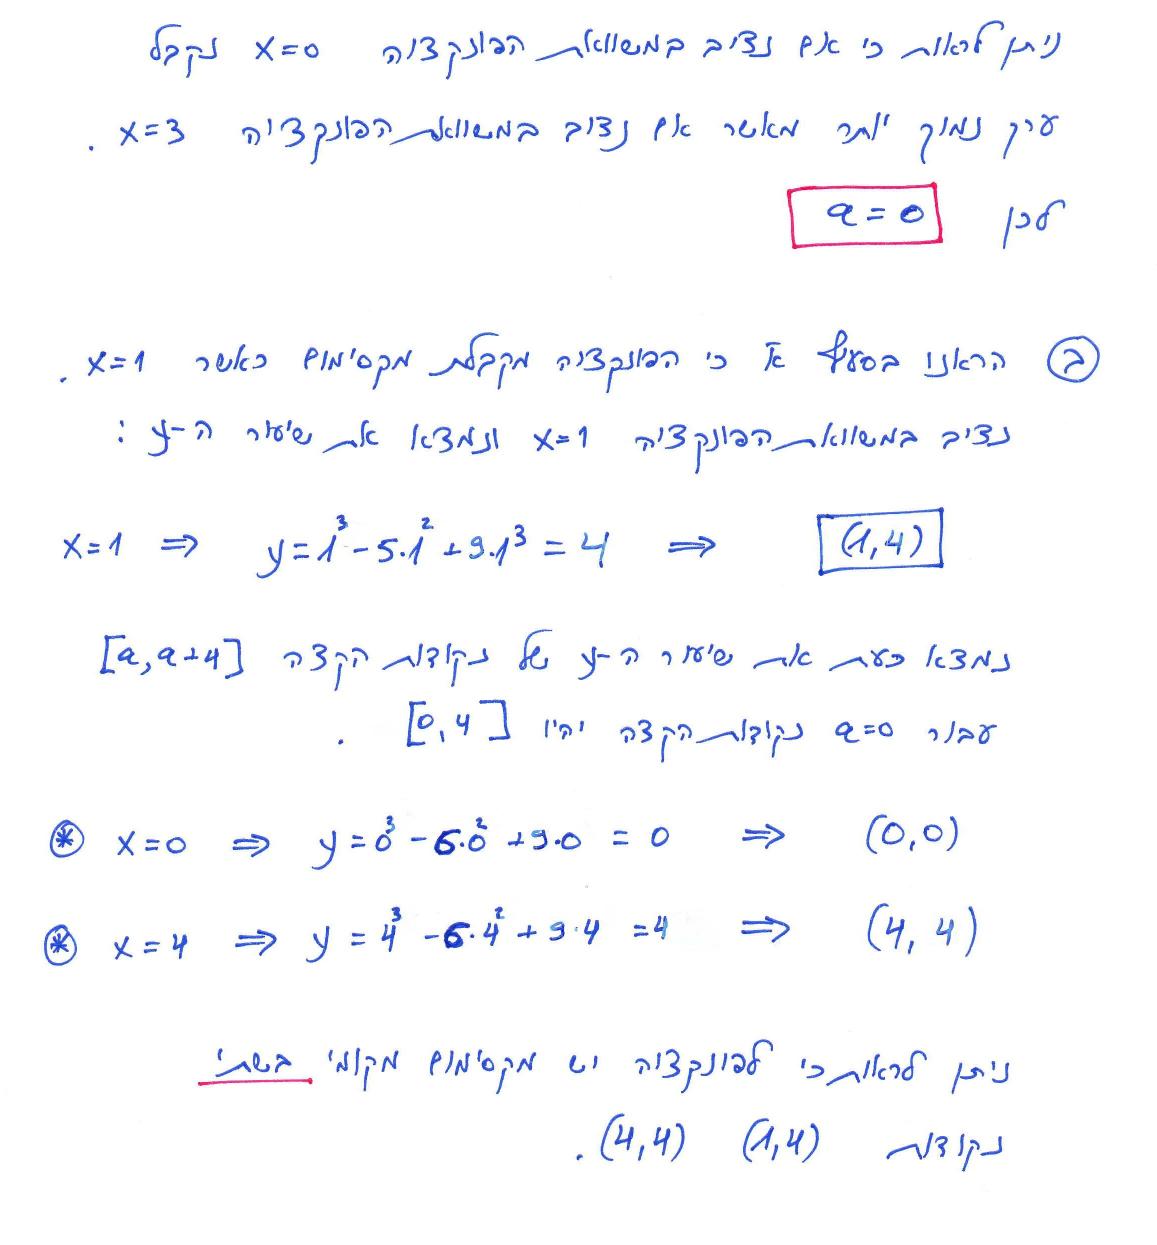 ניתן לראות כי אם נציב במשוואת הפונקציה x=0 נקבל
ערק נמוך יותר מאשר אם נציב במשוואת הפונקציה x=3 .
לכן a=0
ב הראנו בסעיף א' כי הפונקציה מקבלת מקסימום כאשר x=1 .
נציב במשוואת הפונקציה x=1 ונמצא את שיעור ה-y :
x=1 ⇒ y=1³-5·1²+9·1³=4 ⇒ (1,4)
נמצא כעת את שיעור ה-y של נקודות הקצה [a,a+4]
עבור a=0 נקודות הקצה יהיו [0,4] .
* x=0 ⇒ y=0³-6·0²+9·0=0 ⇒ (0,0)
* x=4 ⇒ y=4³-6·4²+9·4=4 ⇒ (4,4)
ניתן לראות כי לפונקציה יש מקסימום מקומי בשתי
נקודות (1,4) (4,4).